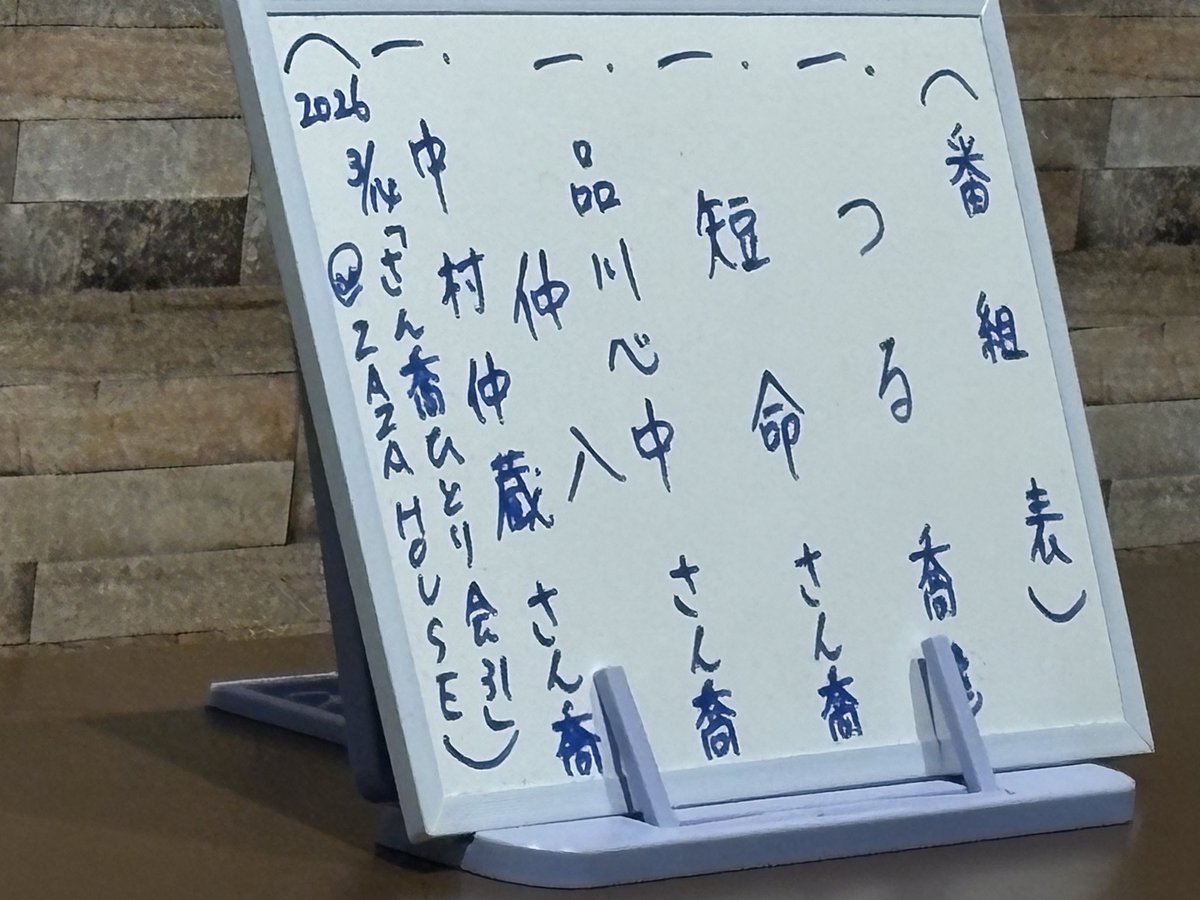 （番組表）
一. つる 喬
一. 短命 さん喬
一. 品川心中 さん喬
仲入
一. 中村仲蔵 さん喬
（「さん喬ひとり会31」
2026 3/14 @ZAZA HOUSE）